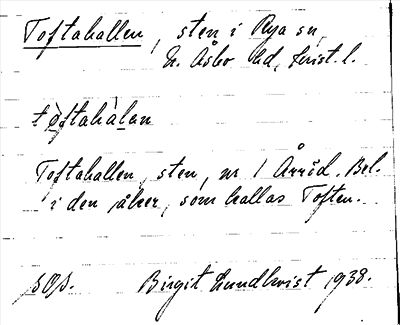 Toftahallen, sten i Rya sn,
N. Åsbo hd, Krist. l.
tòftahàlan
Toftahallen, sten, nr 1 Årröd. Bel.
i den åker, som kallas Toften.
Birgit Lundkvist 1938.